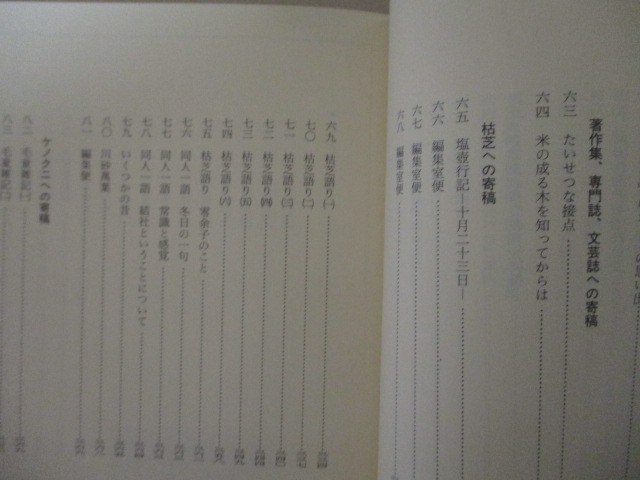 著作集、専門誌、文芸誌への寄稿
六三 たいせつな接点
六四 米の成る木を知ってからは
枯芝への寄稿
六五 塩壺行記―十月二十三日―
六六 編集室便
六七 編集室便
六八 編集室便
六九 枯芝語り(一)
七〇 枯芝語り(二)
七一 枯芝語り(三)
七二 枯芝語り(四)
七三 枯芝語り(五)
七四 枯芝語り(六)
七五 枯芝語り 零余子のこと
七六 同人一語 冬日の一句
七七 同人一語 常識と感覚
七八 同人一語 結社ということについて
七九 いくつかの答
八〇 川紗萬葉
八一 編集便
ケノクニへの寄稿
八二 毛産雑記(一)
八三 毛産雑記(二)